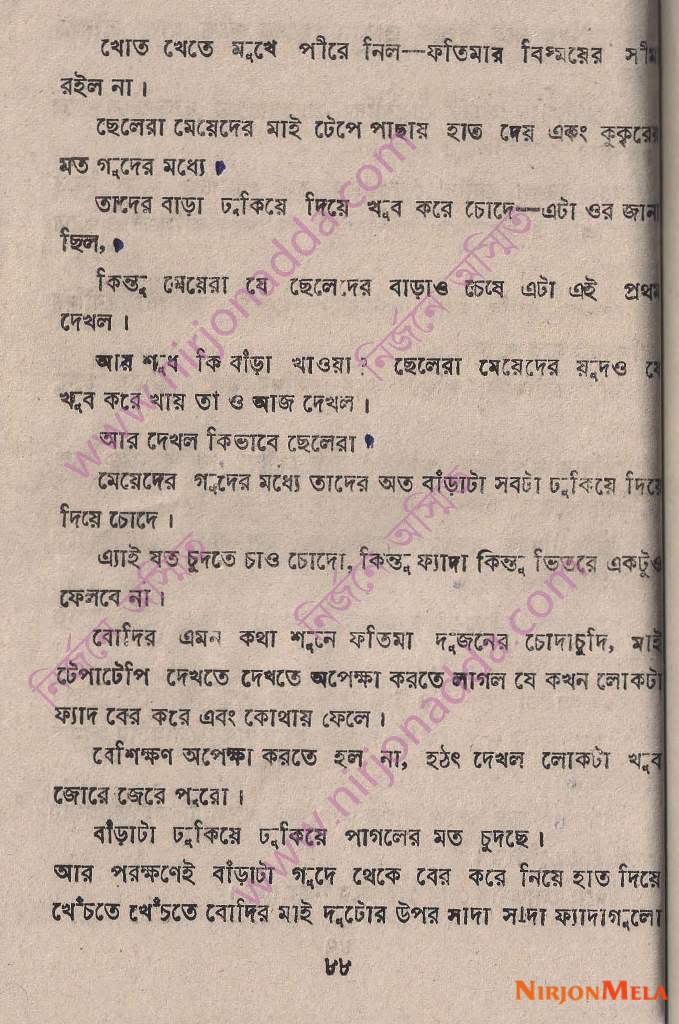 খোত খেতে মুখে পীরে নিল—ফতিমার বিস্ময়ের সীমা
রইল না।
ছেলেরা মেয়েদের মাই টেপে পাছায় হাত দেয় একং কুকুরের
মত গুদের মধ্যে
তাদের বাড়া ঢুকিয়ে দিয়ে খুব করে চোদে—এটা ওর জানা
ছিল,
কিন্তু মেয়েরা যে ছেলেদের বাড়াও চেষে এটা এই প্রথম
দেখল।
আর শুধ কি বাঁড়া খাওয়া? ছেলেরা মেয়েদের যুদও যে
খুব করে খায় তা ও আজ দেখল।
আর দেখল কিভাবে ছেলেরা
মেয়েদের গুদের মধ্যে তাদের অত বাঁড়াটা সবটা ঢুকিয়ে দিয়ে
দিয়ে চোদে।
এ্যাই যত চুদতে চাও চোদো, কিন্তু ফ্যাদা কিন্তু ভিতরে একটুও
ফেলবে না।
বোদির এমন কথা শুনে ফতিমা দুজনের চোদাচুদি, মাই
টেপাটেপি দেখতে দেখতে অপেক্ষা করতে লাগল যে কখন লোকটা
ফ্যাদ বের করে এবং কোথায় ফেলে।
বেশিক্ষণ অপেক্ষা করতে হল না, হঠৎ দেখল লোকটা খুব
জোরে জেরে পুরো।
বাঁড়াটা ঢুকিয়ে ঢুকিয়ে পাগলের মত চুদছে।
আর পরক্ষণেই বাঁড়াটা গুদে থেকে বের করে নিয়ে হাত দিয়ে
খেঁচতে খেঁচতে বোদির মাই দুটোর উপর সাদা সাদা ফ্যাদাগুলো
৮৮
www.nirjonadda.com
নির্জনে অস্মিত
নির্জনে অস্মিত
নির্জনে অস্মিত
www.nirjonadda.com
NIRJONMELA